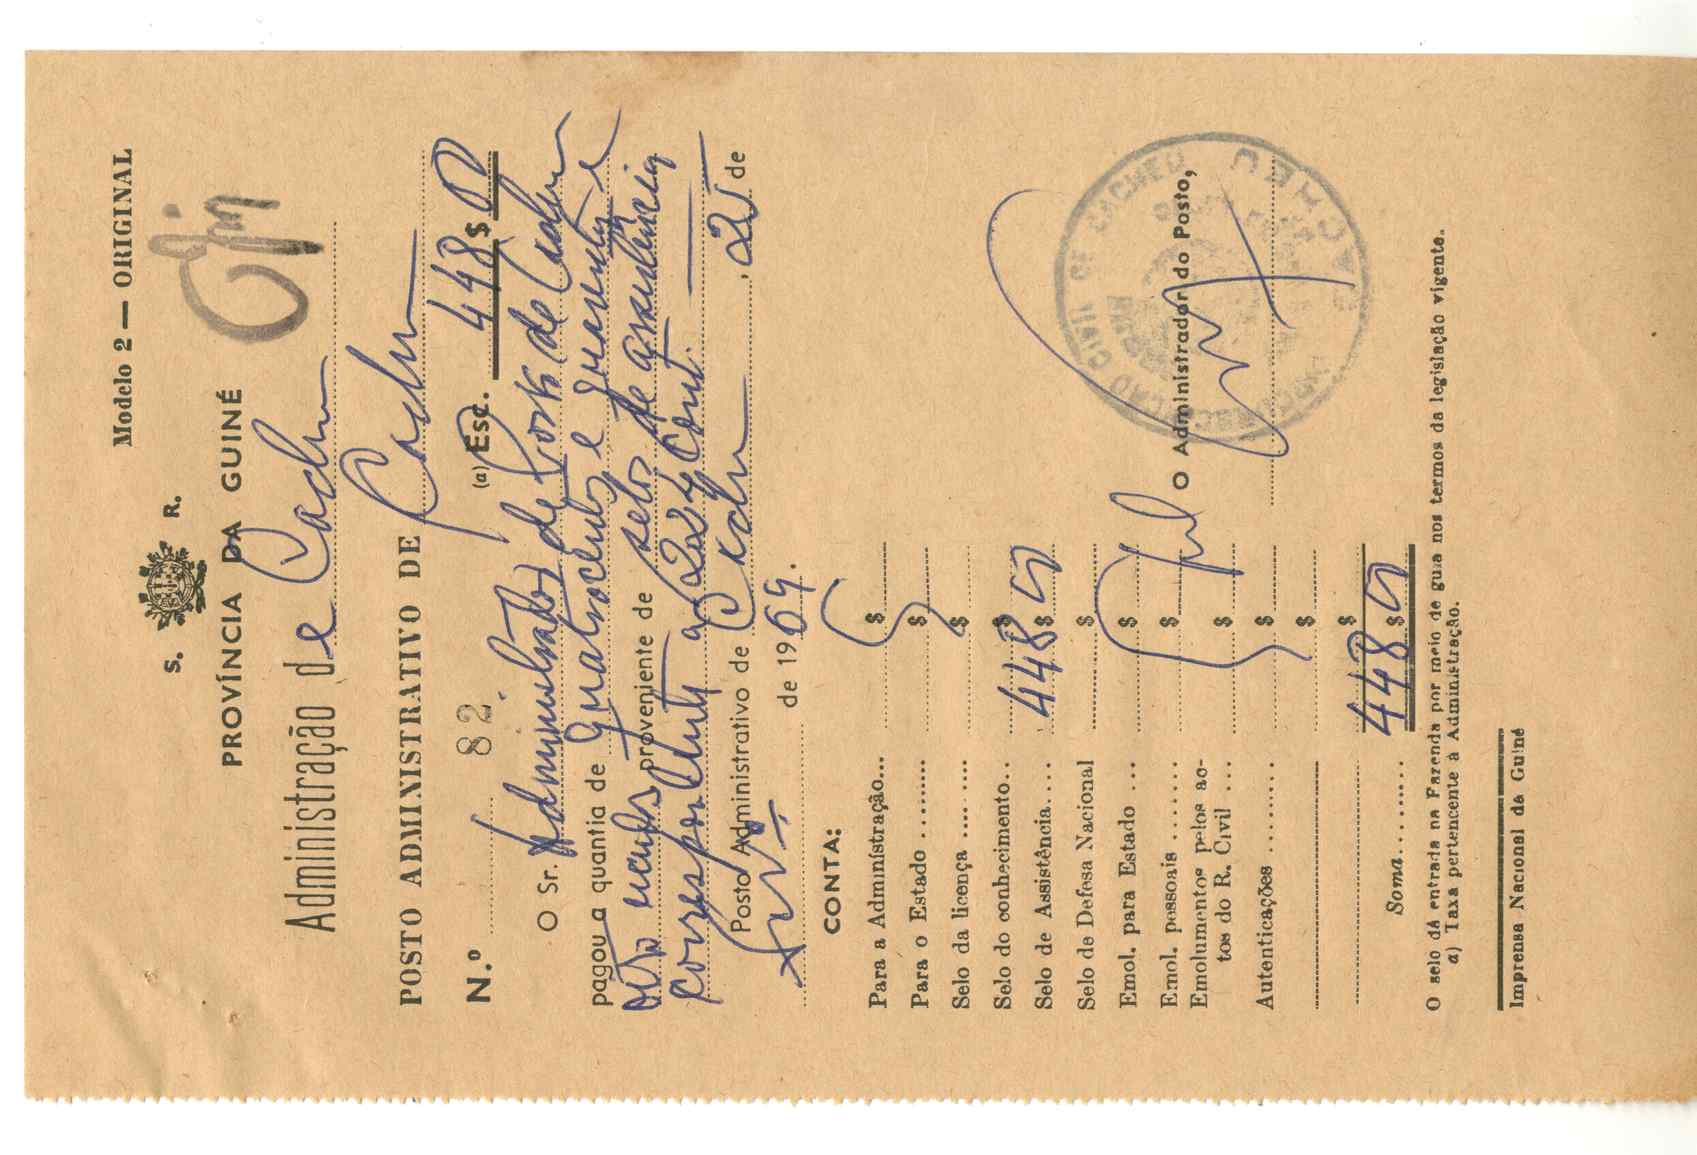 Modelo 2 — ORIGINAL
S. R.
PROVÍNCIA DA GUINÉ
Administração de Cacheu
POSTO ADMINISTRATIVO DE Cacheu
N.º 82 (a) Esc. 448$00
O Sr. Administrador do Posto de Cacheu
pagou a quantia de Quatrocentos e quarenta e
oito escudos proveniente de selos de assistência
correspondente a 224 cont.
Posto Administrativo de Cacheu, 25 de
de 1969.
CONTA:
Para a Administração... $
Para o Estado ........ $
Selo da licença .... ... $
Selo do conhecimento.. $
Selo de Assistência.... 448$00
Selo de Defesa Nacional $
Emol. para Estado ... $
Emol. pessoais ....... $
Emolumentos pelos ac-
tos do R. Civil ... $
Autenticações ........ $
$
$
Soma....... 448$00
O Administrador do Posto,
O selo dá entrada na Fazenda por meio de guia nos termos da legislação vigente.
a) Taxa pertencente à Administração.
Imprensa Nacional da Guiné